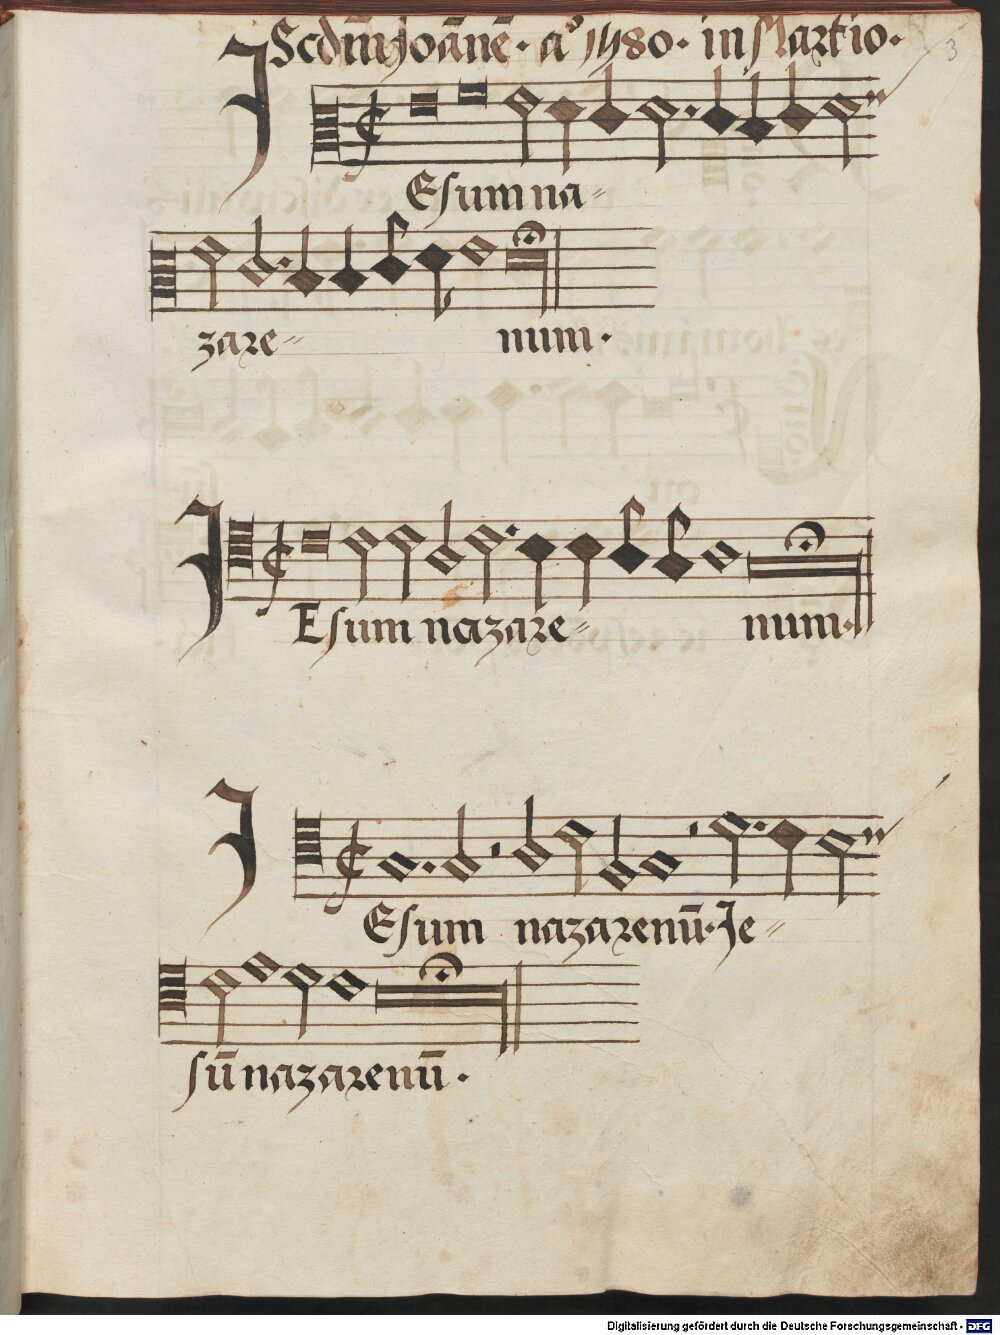 Scdm̄ Joānē · a° 1480 · in Martio ·
3
JEsum na=
zare= num ·
JEsum nazare= num ·
JEsum nazarenū · Je=
sū nazarenū ·
Digitalisierung gefördert durch die Deutsche Forschungsgemeinschaft - DFG